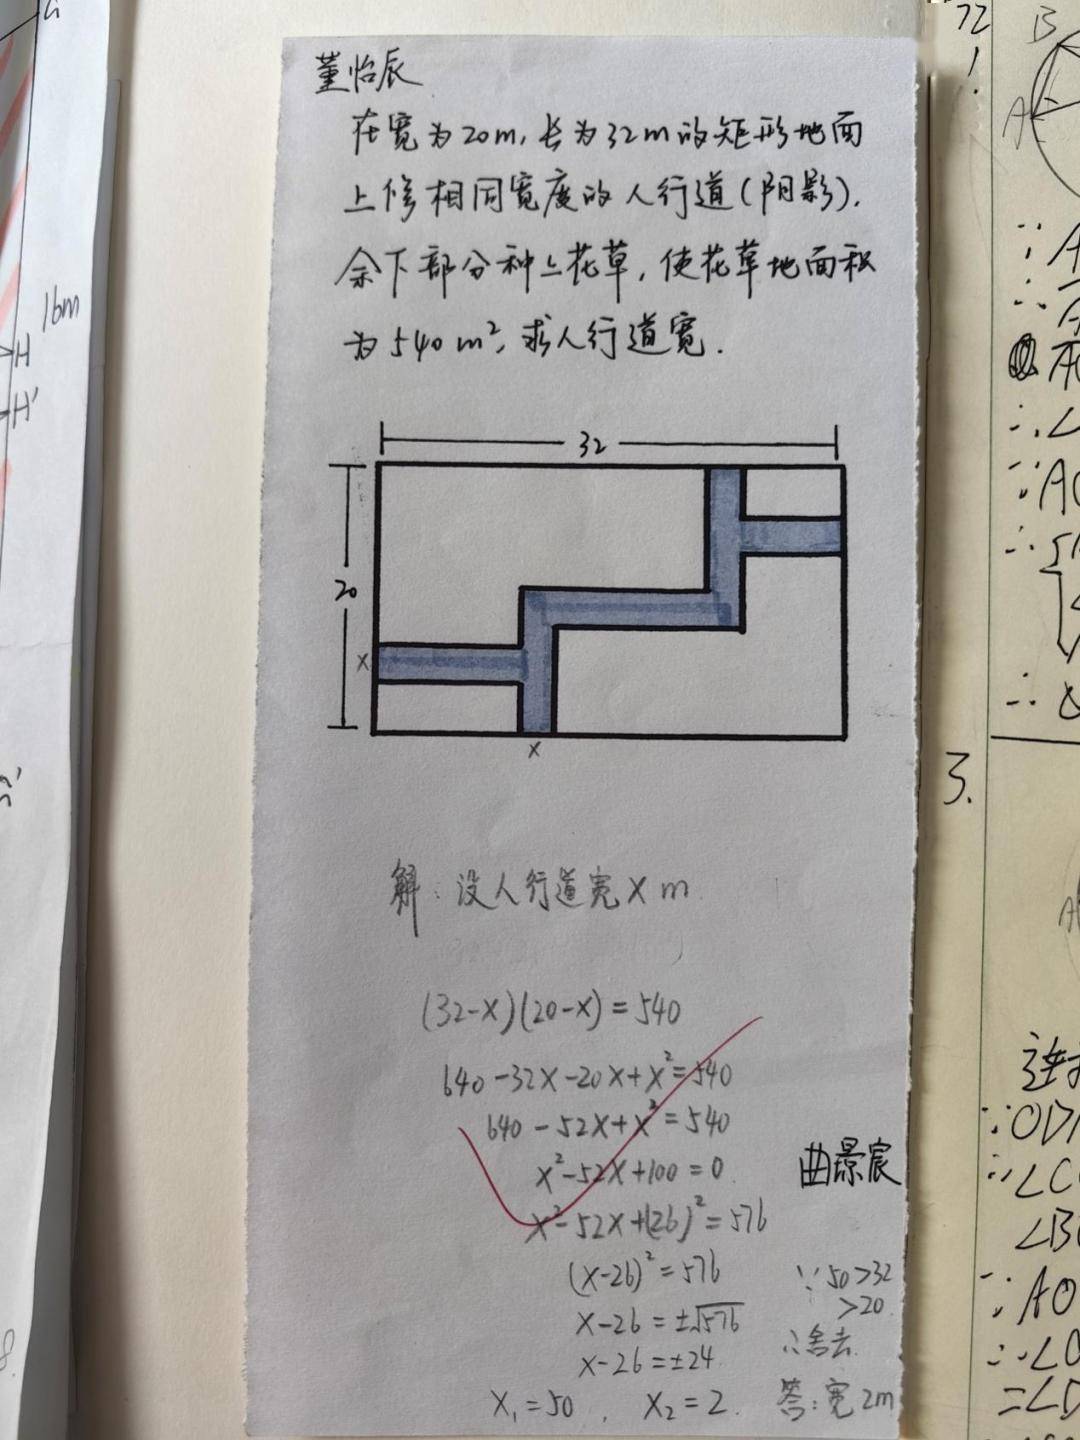 董怡辰
在宽为20m,长为32m的矩形地面
上修相同宽度的人行道(阴影).
余下部分种上花草,使花草地面积
为540m²,求人行道宽.
32
20
x
x
解:设人行道宽x m
(32-x)(20-x)=540
640-32x-20x+x²=540
640-52x+x²=540
x²-52x+100=0
x²-52x+(26)²=576
(x-26)²=576
x-26=±√576
x-26=±24
x₁=50, x₂=2.
曲景宸
∵50>32
>20
∴舍去.
答:宽2m
16m
H
H'
72
!
B
A
3.